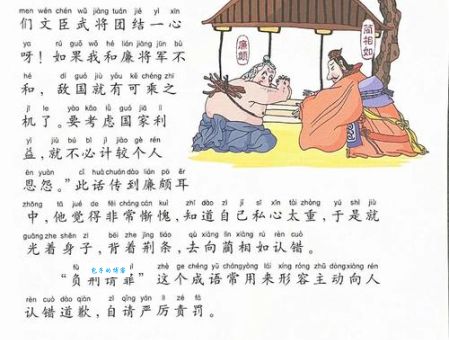 men wén chén wǔ jiàng tuán jié yì xīn
们文臣武将团结一心
ya rú guǒ wǒ hé lián jiāng jūn bù
呀！如果我和廉将军不
hé dí guó jiù yǒu kě chéng zhī
和，敌国就有可乘之
jī le yào kǎo lǜ guó jiā lì
机了。要考虑国家利
yì jiù bú bì jì jiào gè rén
益，就不必计较个人
ēn yuàn cǐ huà chuán dào lián pō ěr
恩怨。”此话传到廉颇耳
zhōng tā jué de fēi cháng cán kuì zhī dào zì jǐ sī xīn tài zhòng yú shì jiù
中，他觉得非常惭愧，知道自己私心太重，于是就
guāng zhe shēn zi bēi zhe jīng tiáo qù xiàng lìn xiàng rú rèn cuò
光着身子，背着荆条，去向蔺相如认错。
fù zhè ge chéng yǔ cháng yòng lái xíng róng zhǔ dòng xiàng rén
“负荆请罪”这个成语常用来形容主动向人
rèn cuò dào qiàn zì qǐng yán lì zé fá
认错道歉，自请严厉责罚。
廉颇
蔺相如
包子的博客